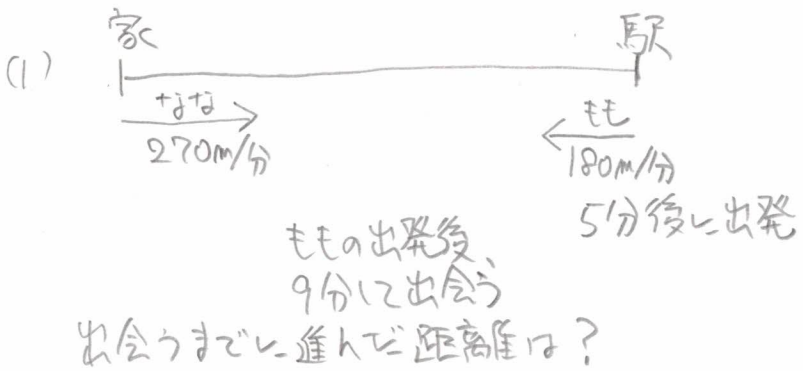 家 駅
(1)
なな もも
270m/分 180m/分
5分後に出発
ももの出発後、
9分して出会う
出会うまでに進んだ距離は?